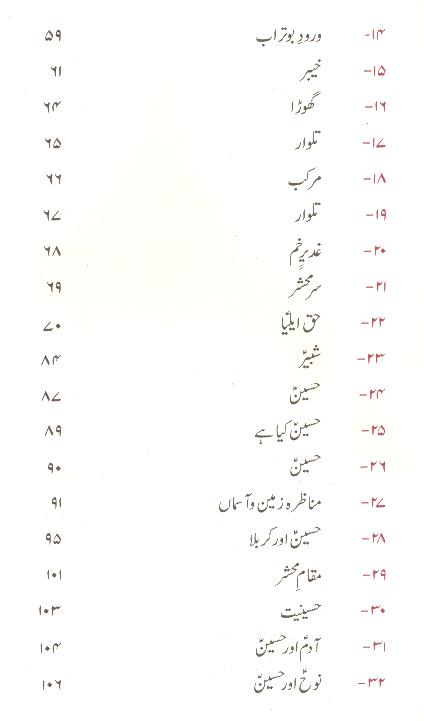 ۱۴- ورودِ بوتراب ۵۹
۱۵- خیبر ۶۱
۱۶- گھوڑا ۶۴
۱۷- تلوار ۶۵
۱۸- مرکب ۶۶
۱۹- تلوار ۶۷
۲۰- غدیرِ خُم ۶۸
۲۱- سرِ محشر ۶۹
۲۲- حق ایلیاؑ ۷۰
۲۳- شبیرؑ ۸۴
۲۴- حسینؑ ۸۷
۲۵- حسینؑ کیا ہے ۸۹
۲۶- حسینؑ ۹۰
۲۷- مناظرہ زمین و آسماں ۹۱
۲۸- حسینؑ اور کربلا ۹۵
۲۹- مقامِ محشر ۱۰۱
۳۰- حسینیت ۱۰۳
۳۱- آدمؑ اور حسینؑ ۱۰۴
۳۲- نوحؑ اور حسینؑ ۱۰۶